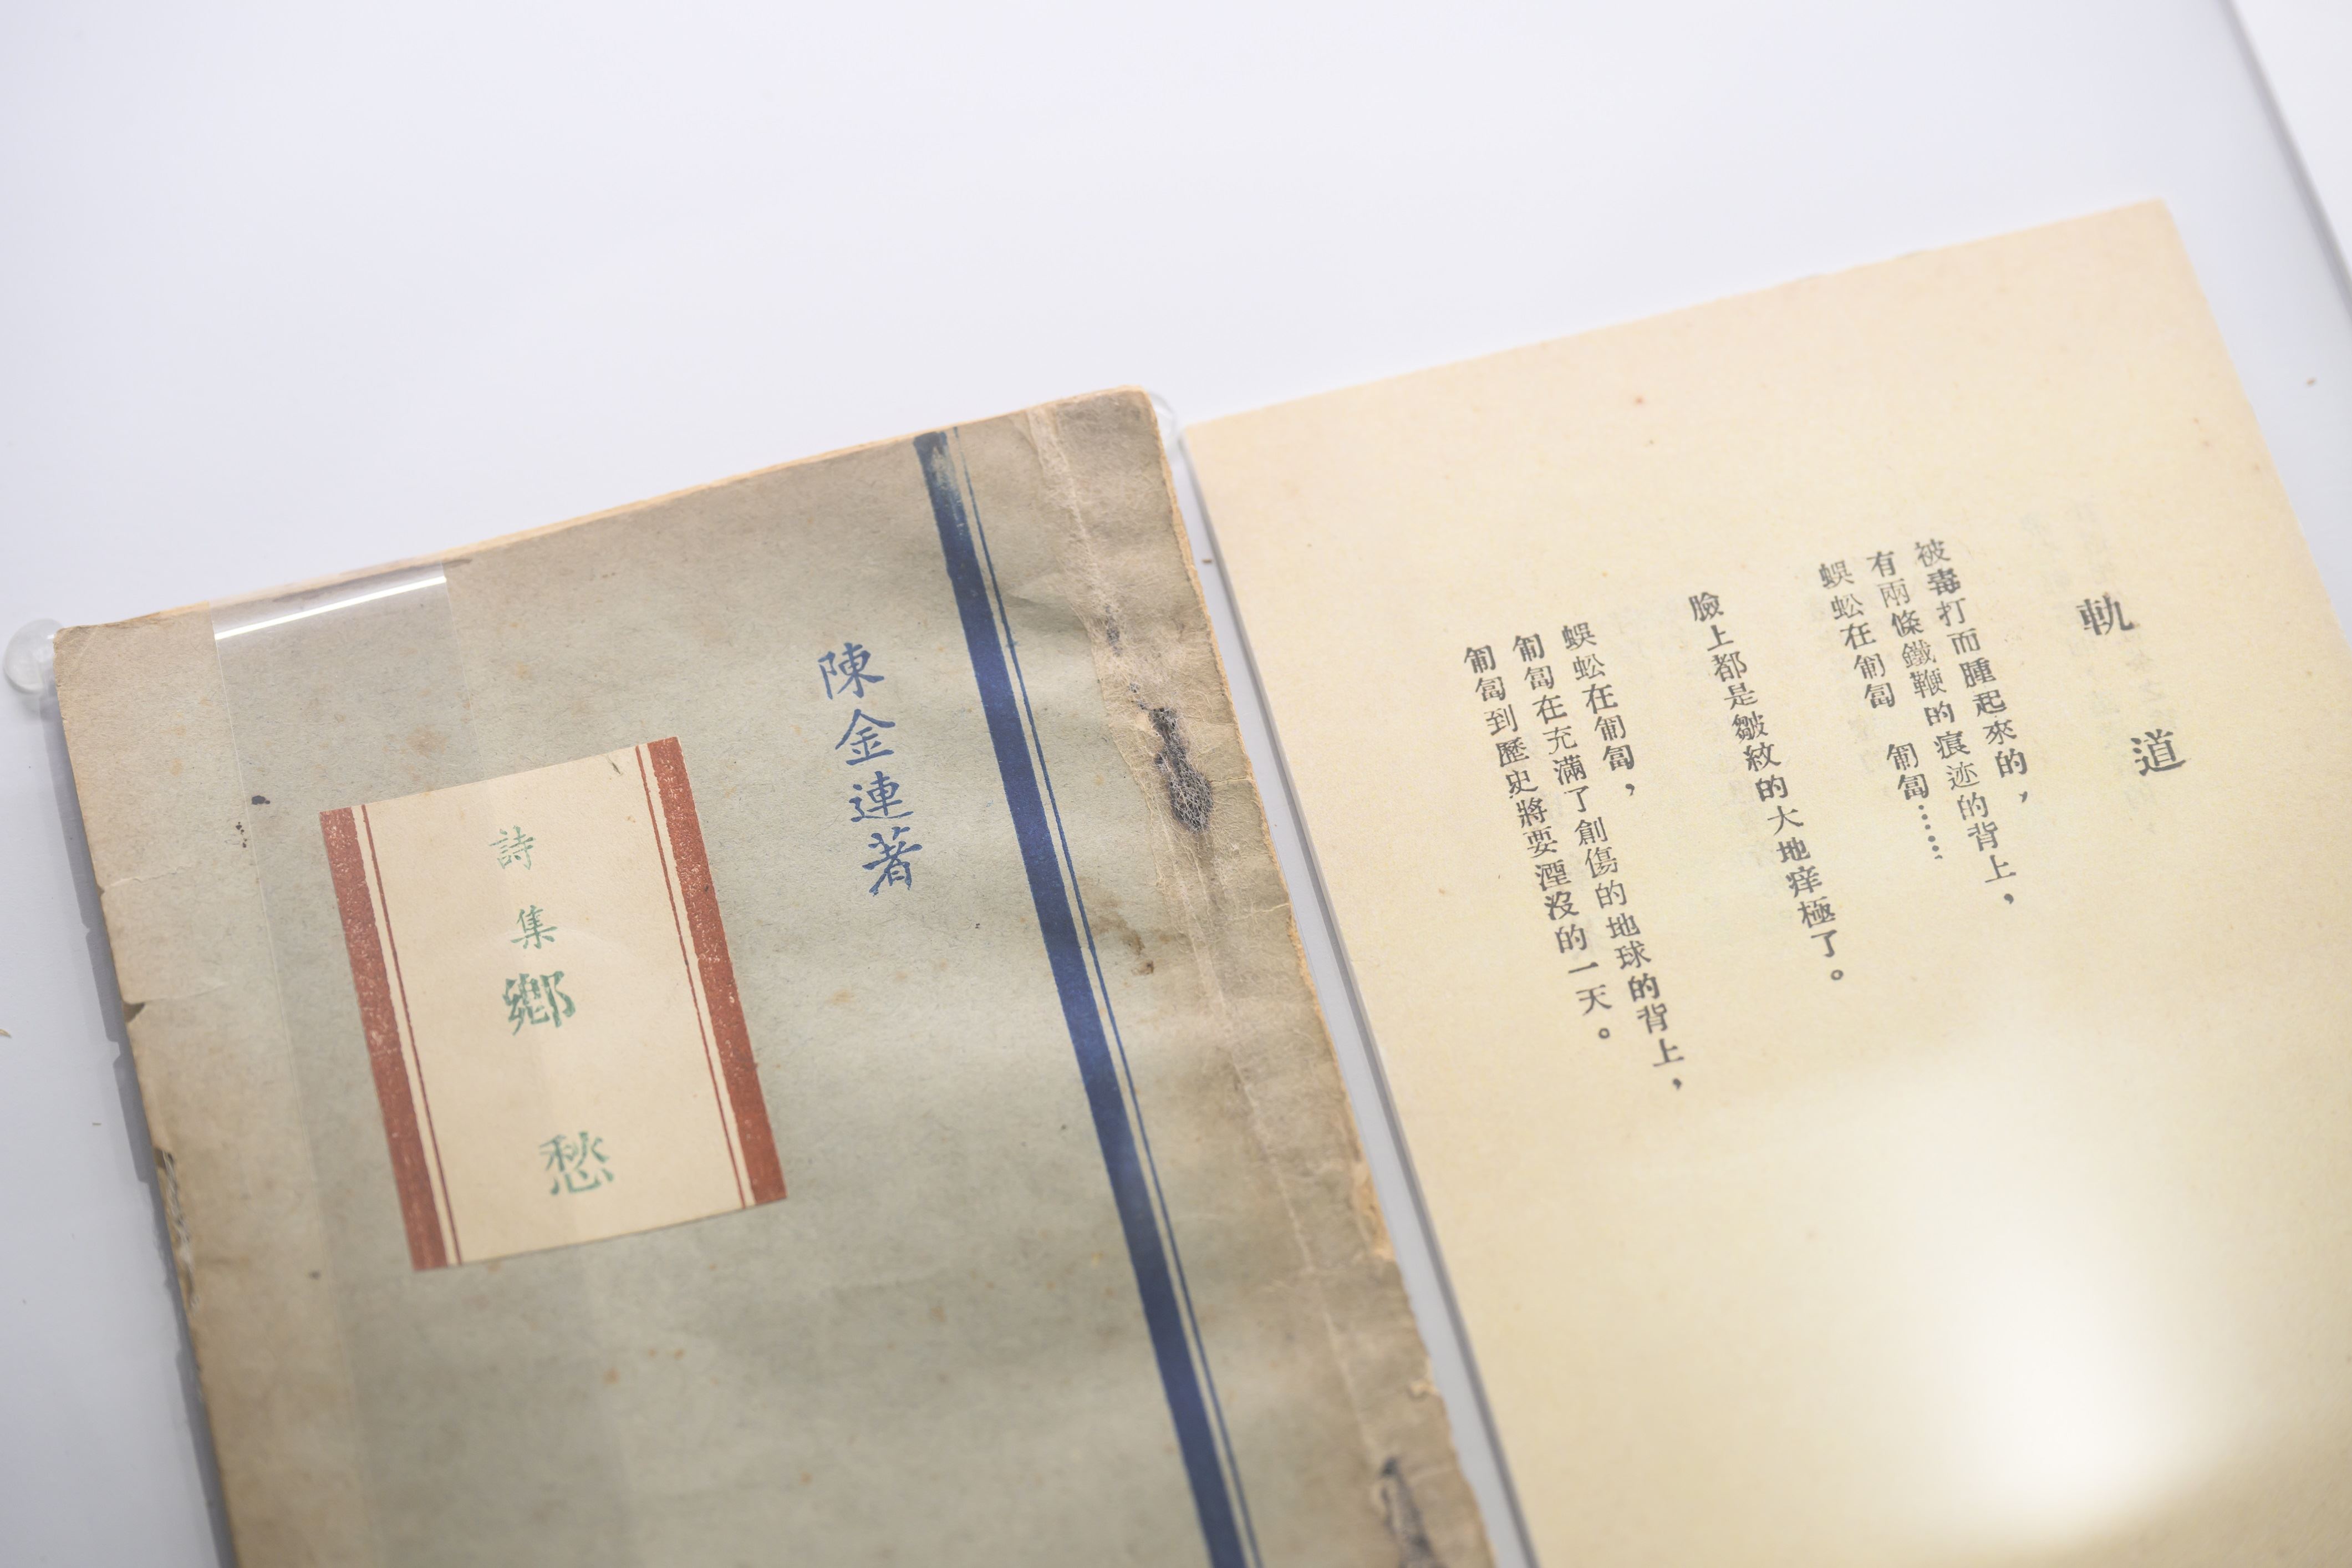 陳金連著
詩集
鄉愁
軌道
被毒打而腫起來的，
有兩條鐵鞭的痕迹的背上，
蜈蚣在匍匐　匍匐……
臉上都是皺紋的大地痒極了。
蜈蚣在匍匐，
匍匐在充滿了創傷的地球的背上，
匍匐到歷史將要湮沒的一天。